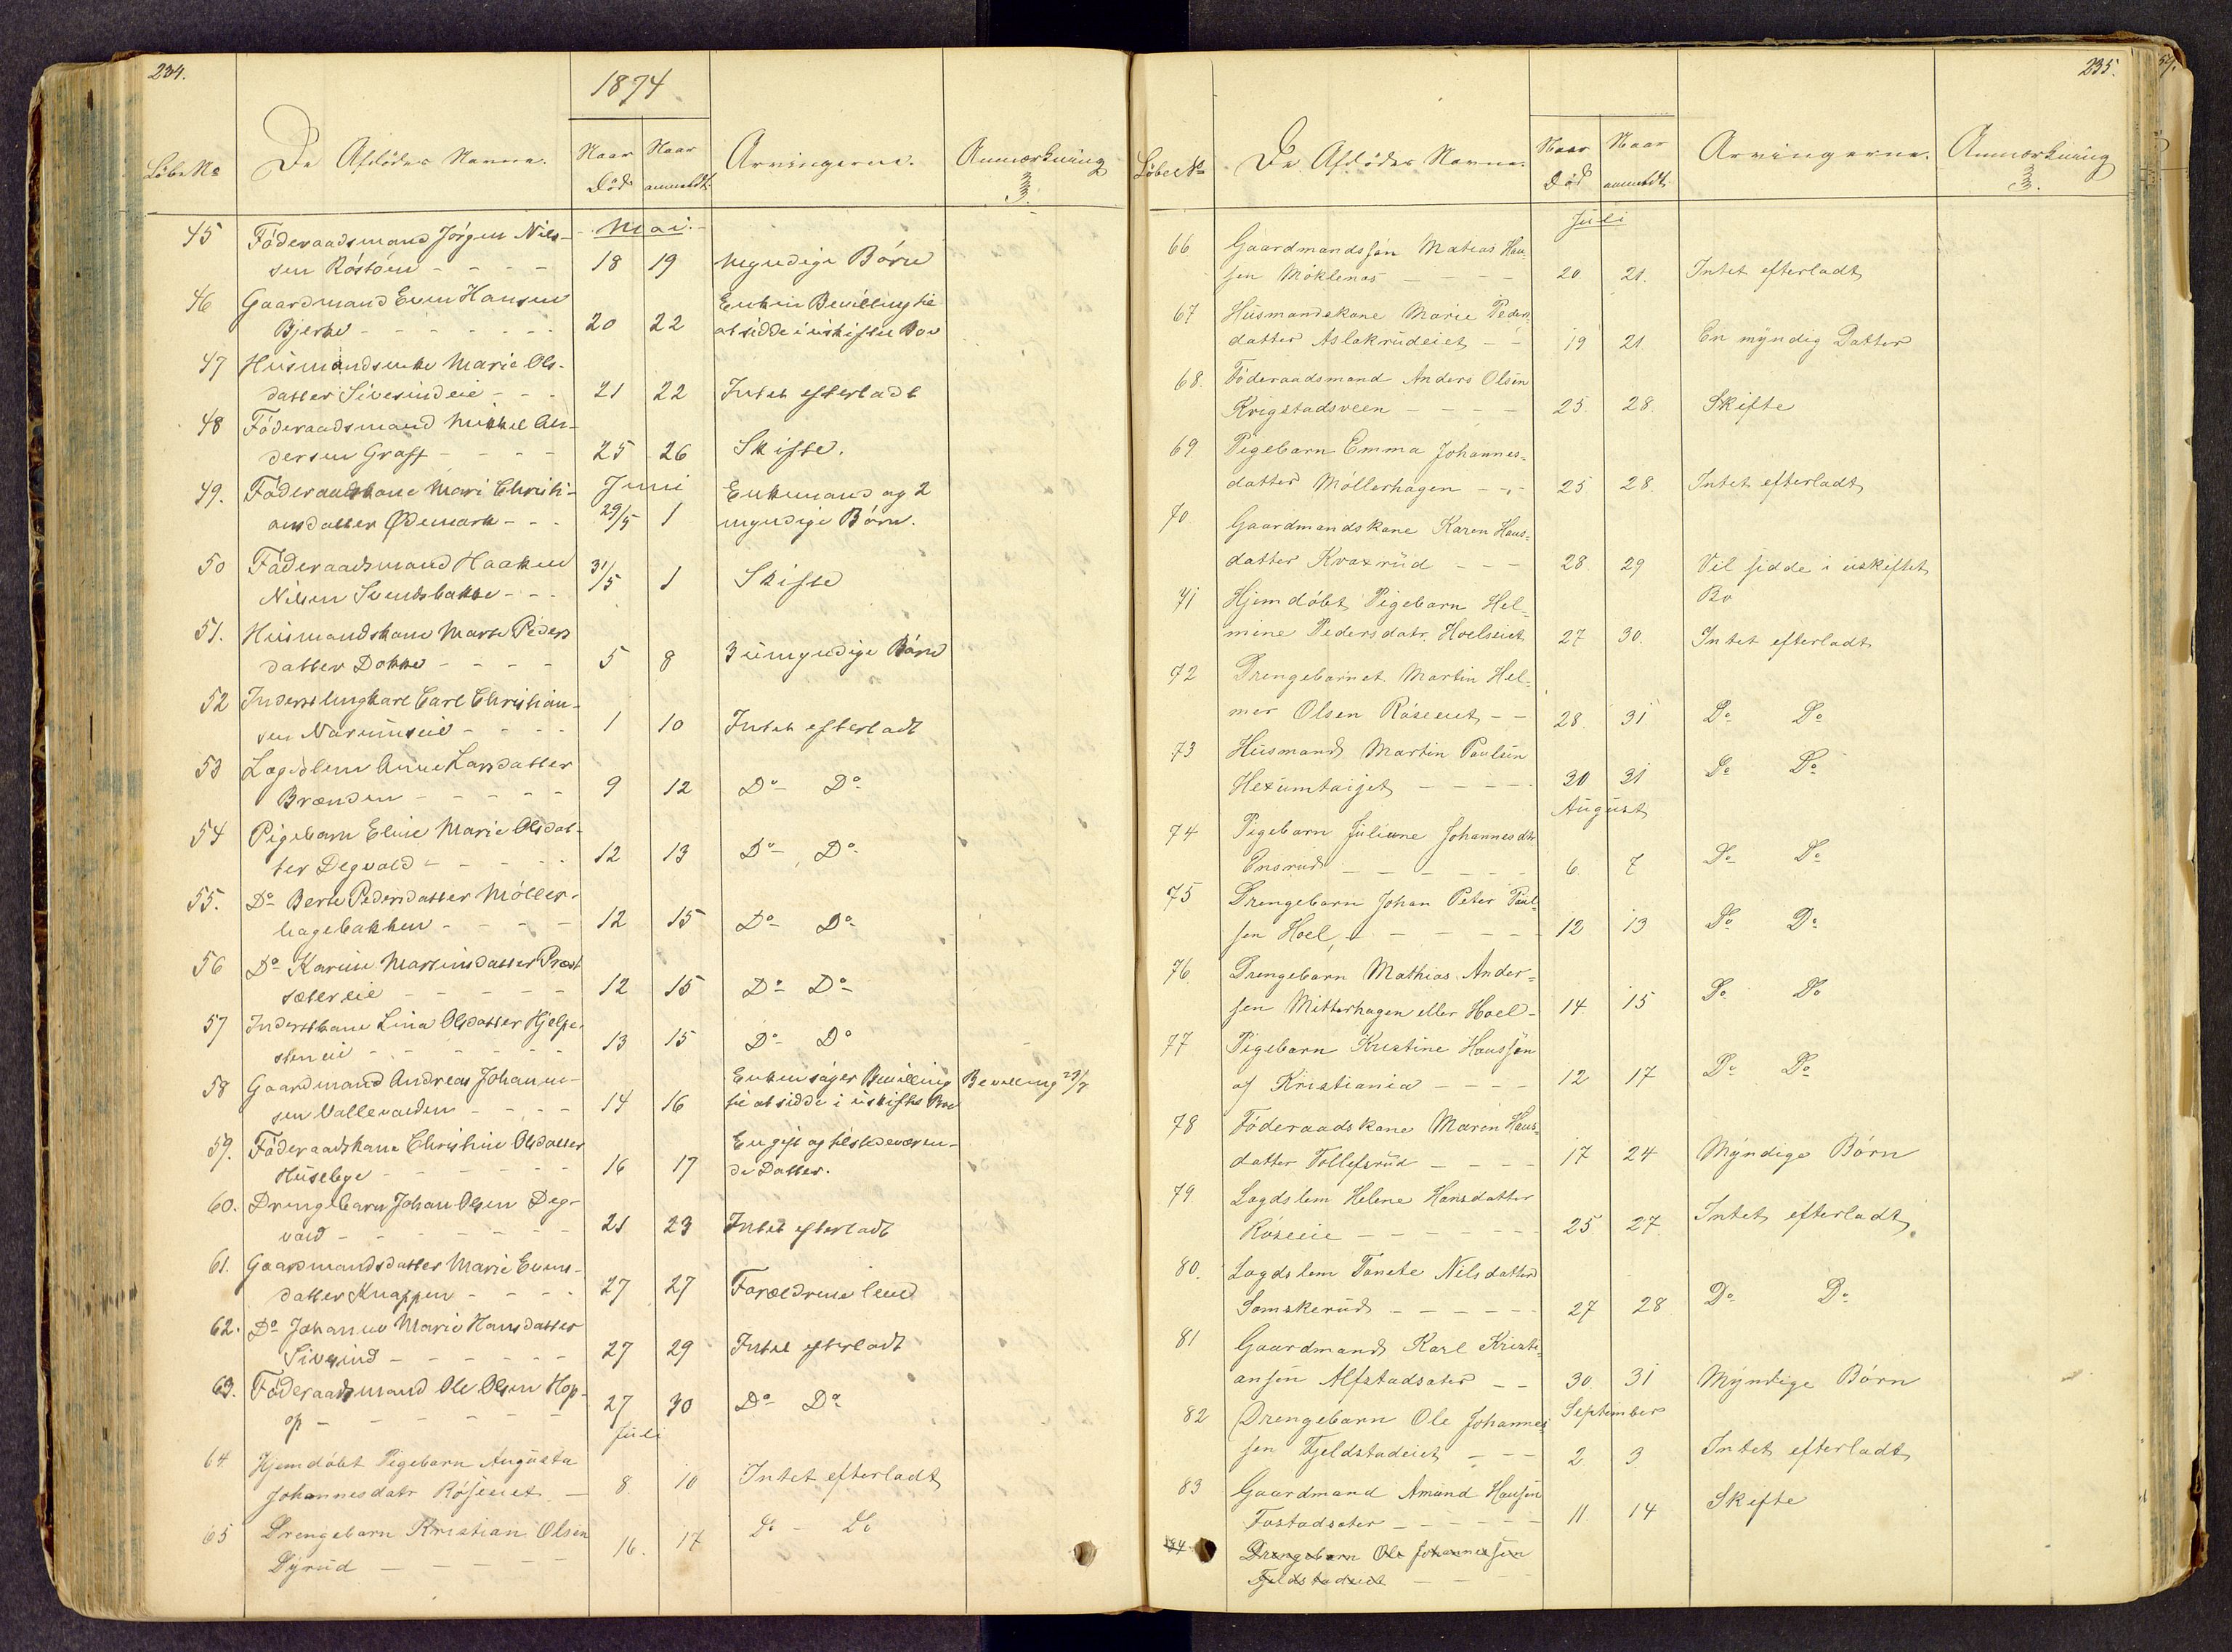 234.
1874
Löbe No De Afdødes Navne. Naar Död Naar anmeldt Arvingerne. Anmærkning
Mai.
45 Föderaadsmand Jörgen Nils-
sen Röstöen - - - - 18 19 Myndige Börn
46 Gaardmand Even Hansen Enken Bevilling til
Bjerke - - - - - - 20 22 at sidde i uskiftet Bo
47 Husmandsenke Marie Ols-
datter Sivesindeie - - - 21 22 Intet efterladt
48 Föderaadsmand Mikkel An-
dersen Graff - - - - 25 26 Skifte.
Juni
49. Föderaadskone Mari Christi- Enkemand og 2
ansdatter Ødemark - - - 29/5 1 myndige Börn.
50 Föderaadsmand Haaken 31/5 1 Skifte
Nilsen Svendsbakke - - -
51. Husmandskone Marte Peders
datter Dokke - - - - 5 8 3 umyndige Börn
52 Inderstungkarl Carl Christian-
sen Narumseie - - - - 1 10 Intet efterladt
53 Lægdslem Anne Larsdatter
Brænden - - - - - 9 12 Do Do
54 Pigebarn Eline Marie Olsdat-
ter Degvold - - - - - 12 13 Do Do
55. Do Berte Pedersdatter Möller-
hagebakken - - - - 12 15 Do Do
56 Do Karine Martinsdatter Præst
sætereie - - - - - 12 15 Do Do
57 Inderstkone Lina Olsdatter Hjelpe-
steneie - - - - - - 13 15 Do Do
58 Gaardmand Andreas Johanne- Enken söger Bevilling Bevilling 29/7
sen Vollevarden - - - - 14 16 til at sidde i uskiftet Bo
59. Föderaadskone Christine Olsdatter En gift og tilstedeværen-
Huselye - - - - - - 16 17 de Datter.
60. Drengebarn Johan Olsen Deg-
vold - - - - - - - 21 23 Intet efterladt
61. Gaardmandsdatter Marie Evens-
datter Knappen - - - - 27 27 Forældrene leve
62. Do Johanne Marie Hansdatter
Sivesind - - - - - - 27 29 Intet efterladt
63. Föderaadsmand Ole Olsen Hop-
op - - - - - - - 27 30 Do Do
Juli
64 Hjemdöbt Pigebarn Augusta
Johannesdatr Röseiet - 8. 10 Intet efterladt
65 Drengebarn Kristian Olsen
Dyrud - - - - 16. 17 Do - Do
235.
Löbe No De Afdödes Navne. Naar Död Naar anmeldt Arvingerne. Anmærkning
Juli
66 Gaardmandssön Matias Han-
sen Möklenas - - - 20 21. Intet efterladt
67 Husmandskone Marie Peders-
datter Aslakrudeiet - - 19 21 En myndig Datter
68. Föderaadsmand Anders Olsen
Krigstadsveen - - - - 25. 28. Skifte
69. Pigebarn Emma Johannes-
datter Möllerhagen - - - 25 28. Intet efterladt
70 Gaardmandskone Karen Hans-
datter Kvaxrud - - - 28. 29 Vil sidde i uskiftet
Bo
71 Hjemdöbt Pigebarn Hel-
mine Pedersdatr. Hoelseiet 27 30. Intet efterladt
72 Drengebarnet Martin Hel-
mer Olsen Röseeiet - - 28. 31 Do Do
73 Husmand Martin Paulsen
Hexumtaijet - - - - - 30 31 Do Do
August
74 Pigebarn Juliane Johannesdtr
Ensrud - - - - - - 6. 7 Do Do
75 Drengebarn Johan Peter Paul-
sen Hoel, - - - - - 12 13 Do Do
76 Drengebarn Mathias Ander-
sen Mitterhagen eller Hoel - 14. 15 Do Do
77 Pigebarn Kristine Hanssen
af Kristiania - - - - 12 17 Do Do
78 Föderaadskone Maren Hans-
datter Tollefsrud - - - - 17 24 Myndige Börn
79. Lagdslem Helene Hansdatter
Röseeie - - - - - - 25. 27. Intet efterladt,
80. Lagdslem Tanete Nilsdatter
Somskerud - - - - - - 27 28 Do Do
81 Gaardmand Karl Kristi-
ansen Alfstadsater - - 30. 31 Myndige Börn
September
82 Drengebarn Ole Johannes-
sen Fjeldstadeiet - - - 2. 3. Intet efterladt
83 Gaardmand Amund Hansen
Fastadsater - - - - - - 11. 14 Skifte
84 Drengebarn Ole Johannessen
Fjeldstadeiet - - - -